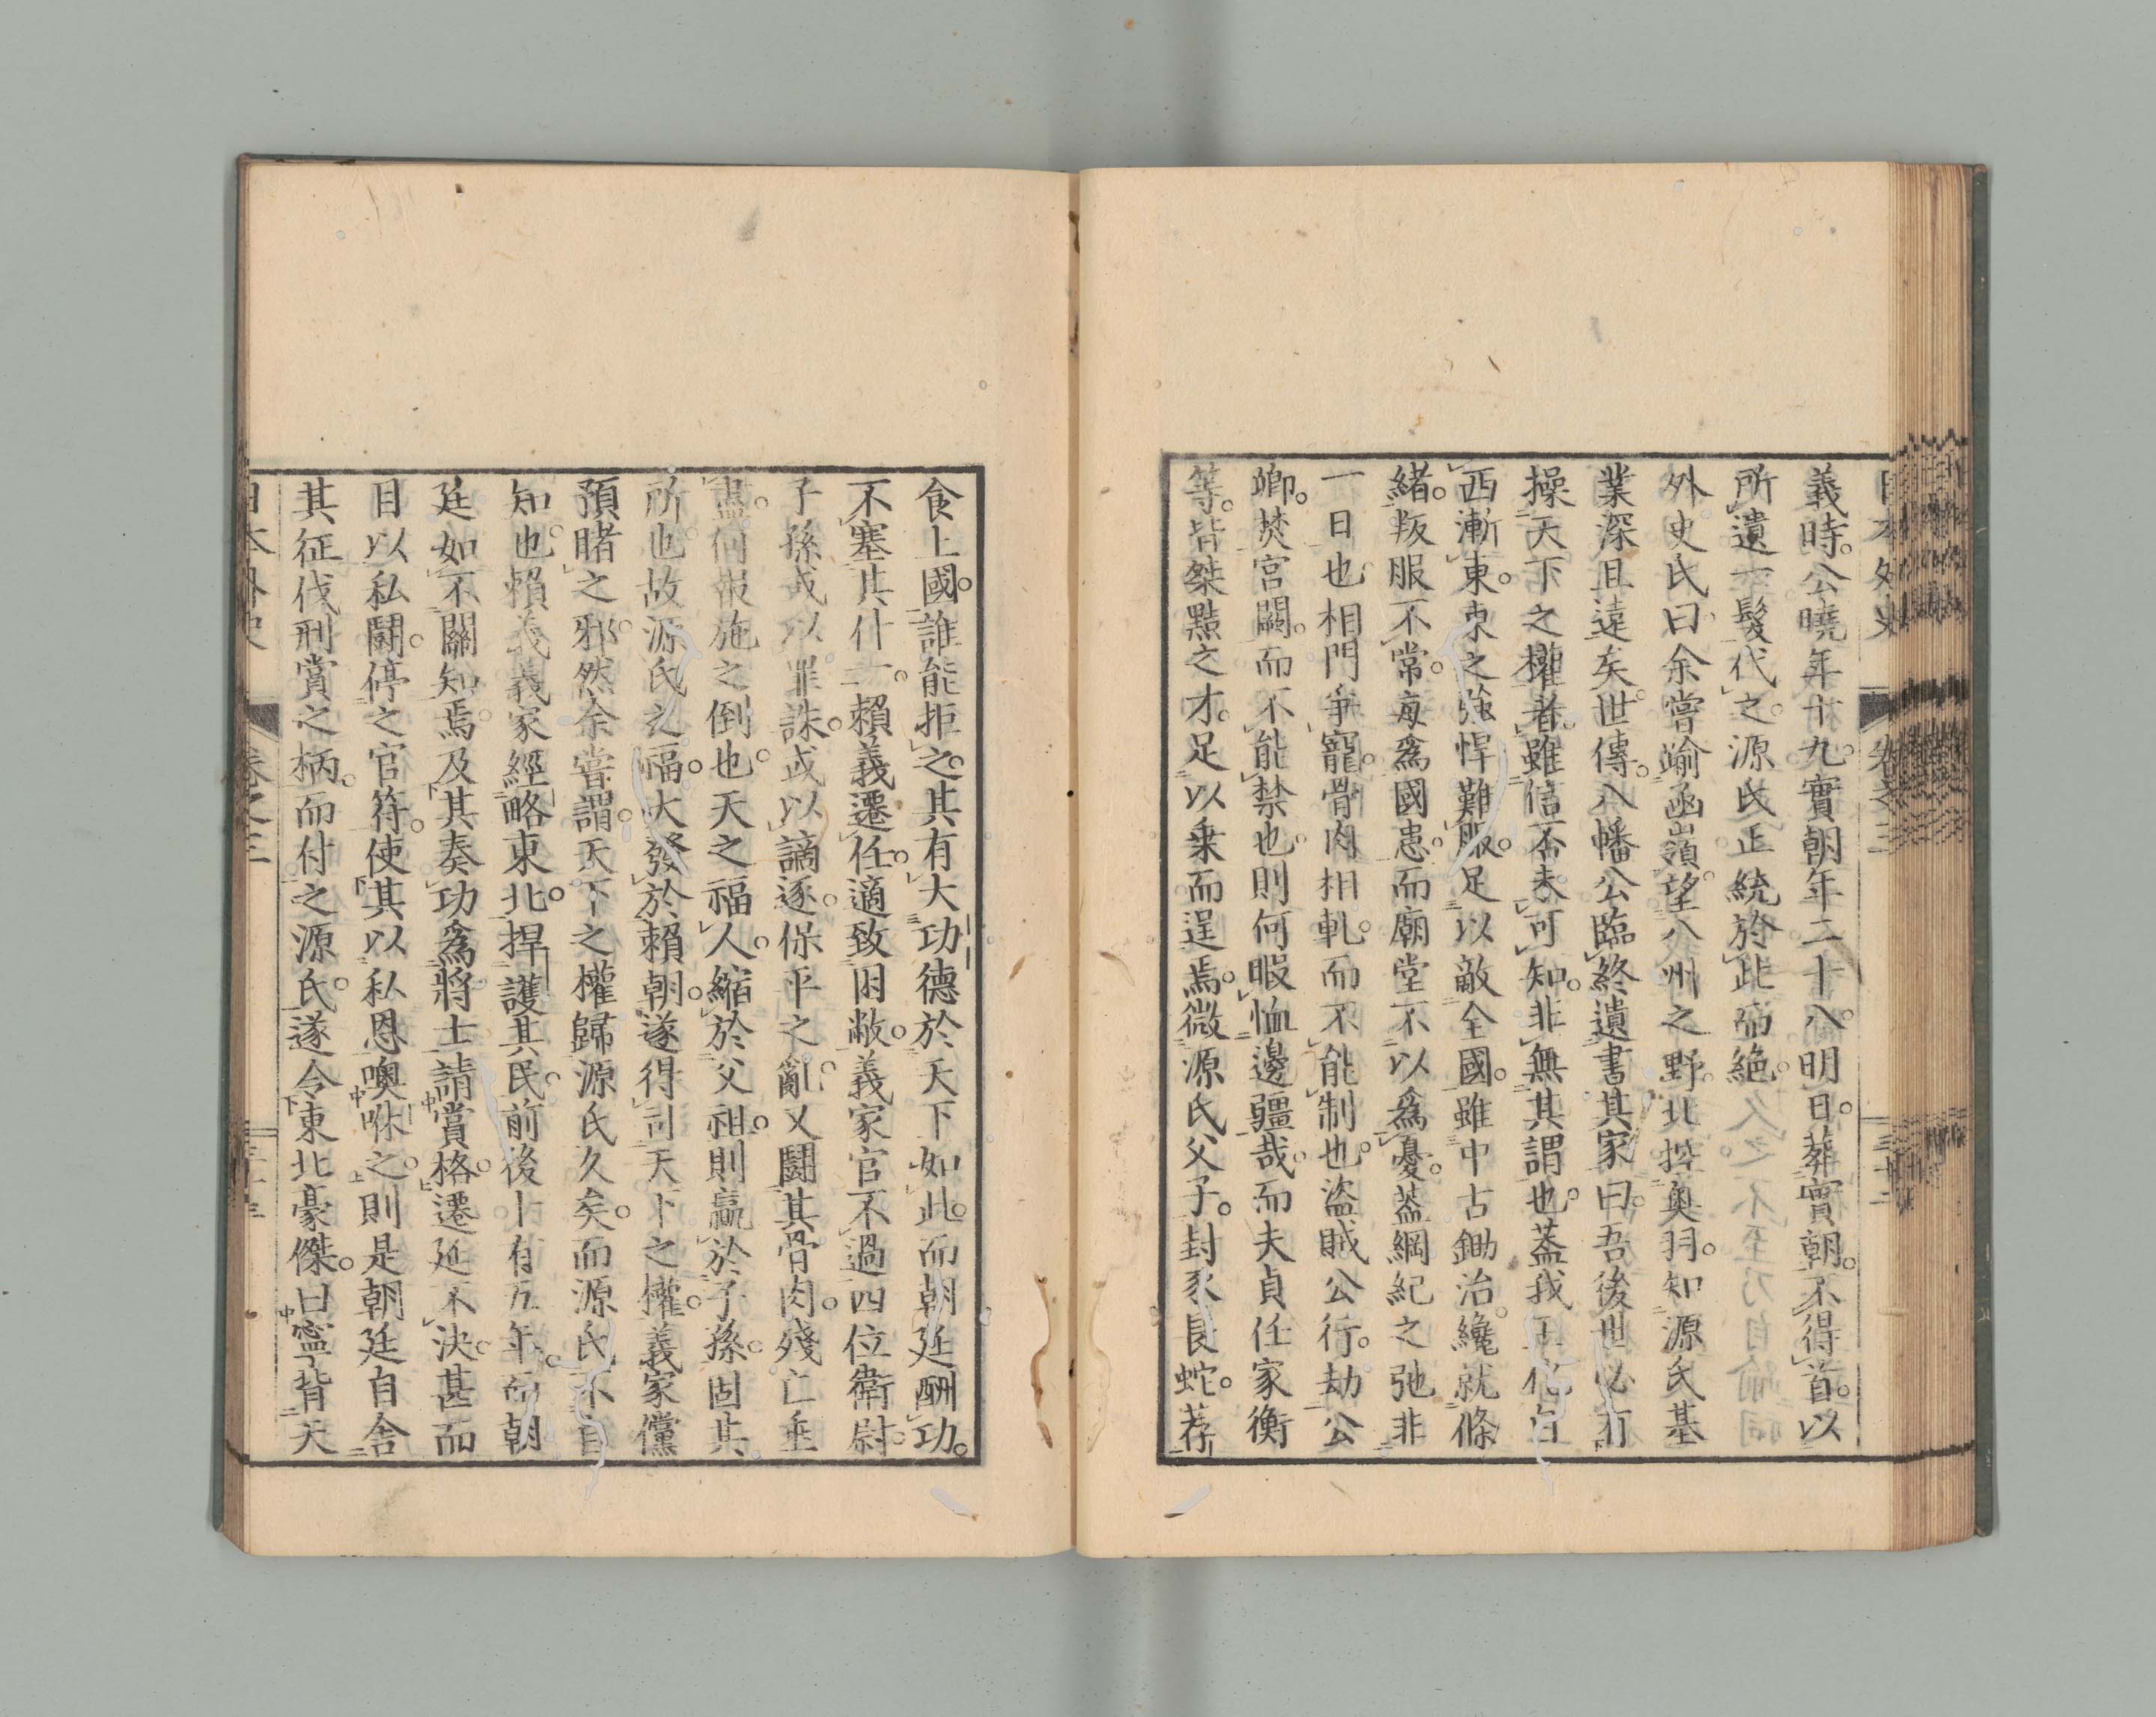 義時。公曉年十九。實朝年二十八。明日。葬實朝。不得首。以
所遺一髮代之。源氏正統於此而絶。
外史氏曰。余嘗踰函嶺。望八州之野。北控奥羽。知源氏基
業深且遠矣。世傳。八幡公臨終遺書其家曰。吾後世必有
操天下之權者。雖信否未可知。非無其謂也。蓋我王化自
西漸東。東之強悍難服。足以敵全國。雖中古鋤治。纔就條
緒。叛服不常。毎爲國患。而廟堂不以爲憂。蓋綱紀之弛非
一日也。相門爭寵。骨肉相軋。而不能制也。盜賊公行。劫公
卿。焚宮闕。而不能禁也。則何暇恤邊疆哉。而夫貞任家衡
等。皆桀黠之才。足以乗而逞焉。微源氏父子。封豕長蛇。荐
食上國。誰能拒之。其有大功德於天下如此。而朝廷酬功。
不塞其什一。賴義遷任。適致困敝。義家官不過四位衛尉。
子孫或以罪誅。或以謫逐。保平之亂。又鬪其骨肉。殘亡垂
盡。何報施之倒也。天之福人。縮於父祖。則贏於子孫。固其
所也。故源氏之福。大發於賴朝。遂得司天下之權。義家儻
預睹之邪。然余嘗謂。天下之權歸源氏久矣。而源氏不自
知也。賴義義家經略東北。捍護其民。前後十有五年。而朝
廷如不關知焉。及其奏功爲將士請賞格。遷延不決。甚而
目以私鬪。停之官符。使其以私恩噢咻之。則是朝廷自舎
其征伐刑賞之柄。而付之源氏。遂令東北豪傑。曰寧背天
卷之三